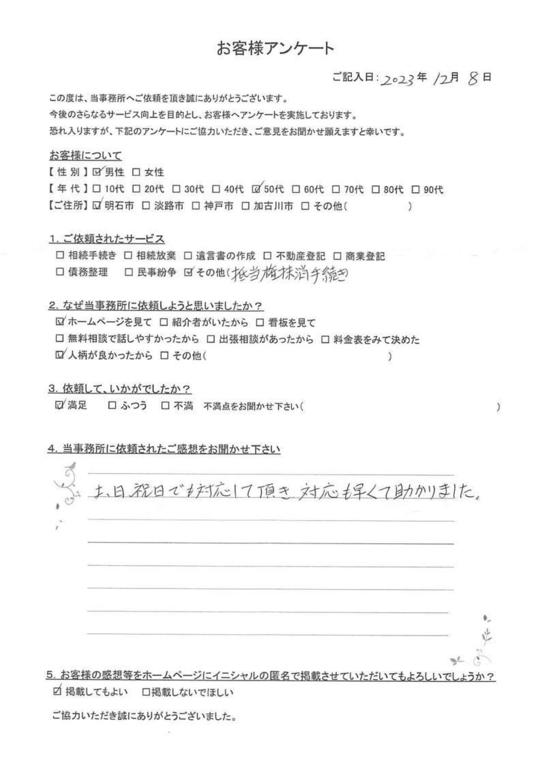 お客様アンケート
ご記入日:2023年 12月 8日
この度は、当事務所へご依頼を頂き誠にありがとうございます。
今後のさらなるサービス向上を目的とし、お客様へアンケートを実施しております。
恐れ入りますが、下記のアンケートにご協力いただき、ご意見をお聞かせ願えますと幸いです。
お客様について
【 性 別 】 ☑ 男性 ☐ 女性
【 年 代 】 ☐ 10代 ☐ 20代 ☐ 30代 ☐ 40代 ☑ 50代 ☐ 60代 ☐ 70代 ☐ 80代 ☐ 90代
【ご住所】 ☑ 明石市 ☐ 淡路市 ☐ 神戸市 ☐ 加古川市 ☐ その他( )
1. ご依頼されたサービス
☐ 相続手続き ☐ 相続放棄 ☐ 遺言書の作成 ☐ 不動産登記 ☐ 商業登記
☐ 債務整理 ☐ 民事紛争 ☑ その他(抵当権抹消手続き
2. なぜ当事務所に依頼しようと思いましたか?
☑ ホームページを見て ☐ 紹介者がいたから ☐ 看板を見て
☐ 無料相談で話しやすかったから ☐ 出張相談があったから ☐ 料金表をみて決めた
☑ 人柄が良かったから ☐ その他( )
3. 依頼して、いかがでしたか?
☑ 満足 ☐ ふつう ☐ 不満 不満点をお聞かせ下さい( )
4. 当事務所に依頼されたご感想をお聞かせ下さい
土、日、祝日でも対応して頂き 対応も早くて助かりました。
5. お客様の感想等をホームページにイニシャルの匿名で掲載させていただいてもよろしいでしょうか?
☑ 掲載してもよい ☐掲載しないでほしい
ご協力いただき誠にありがとうございました。